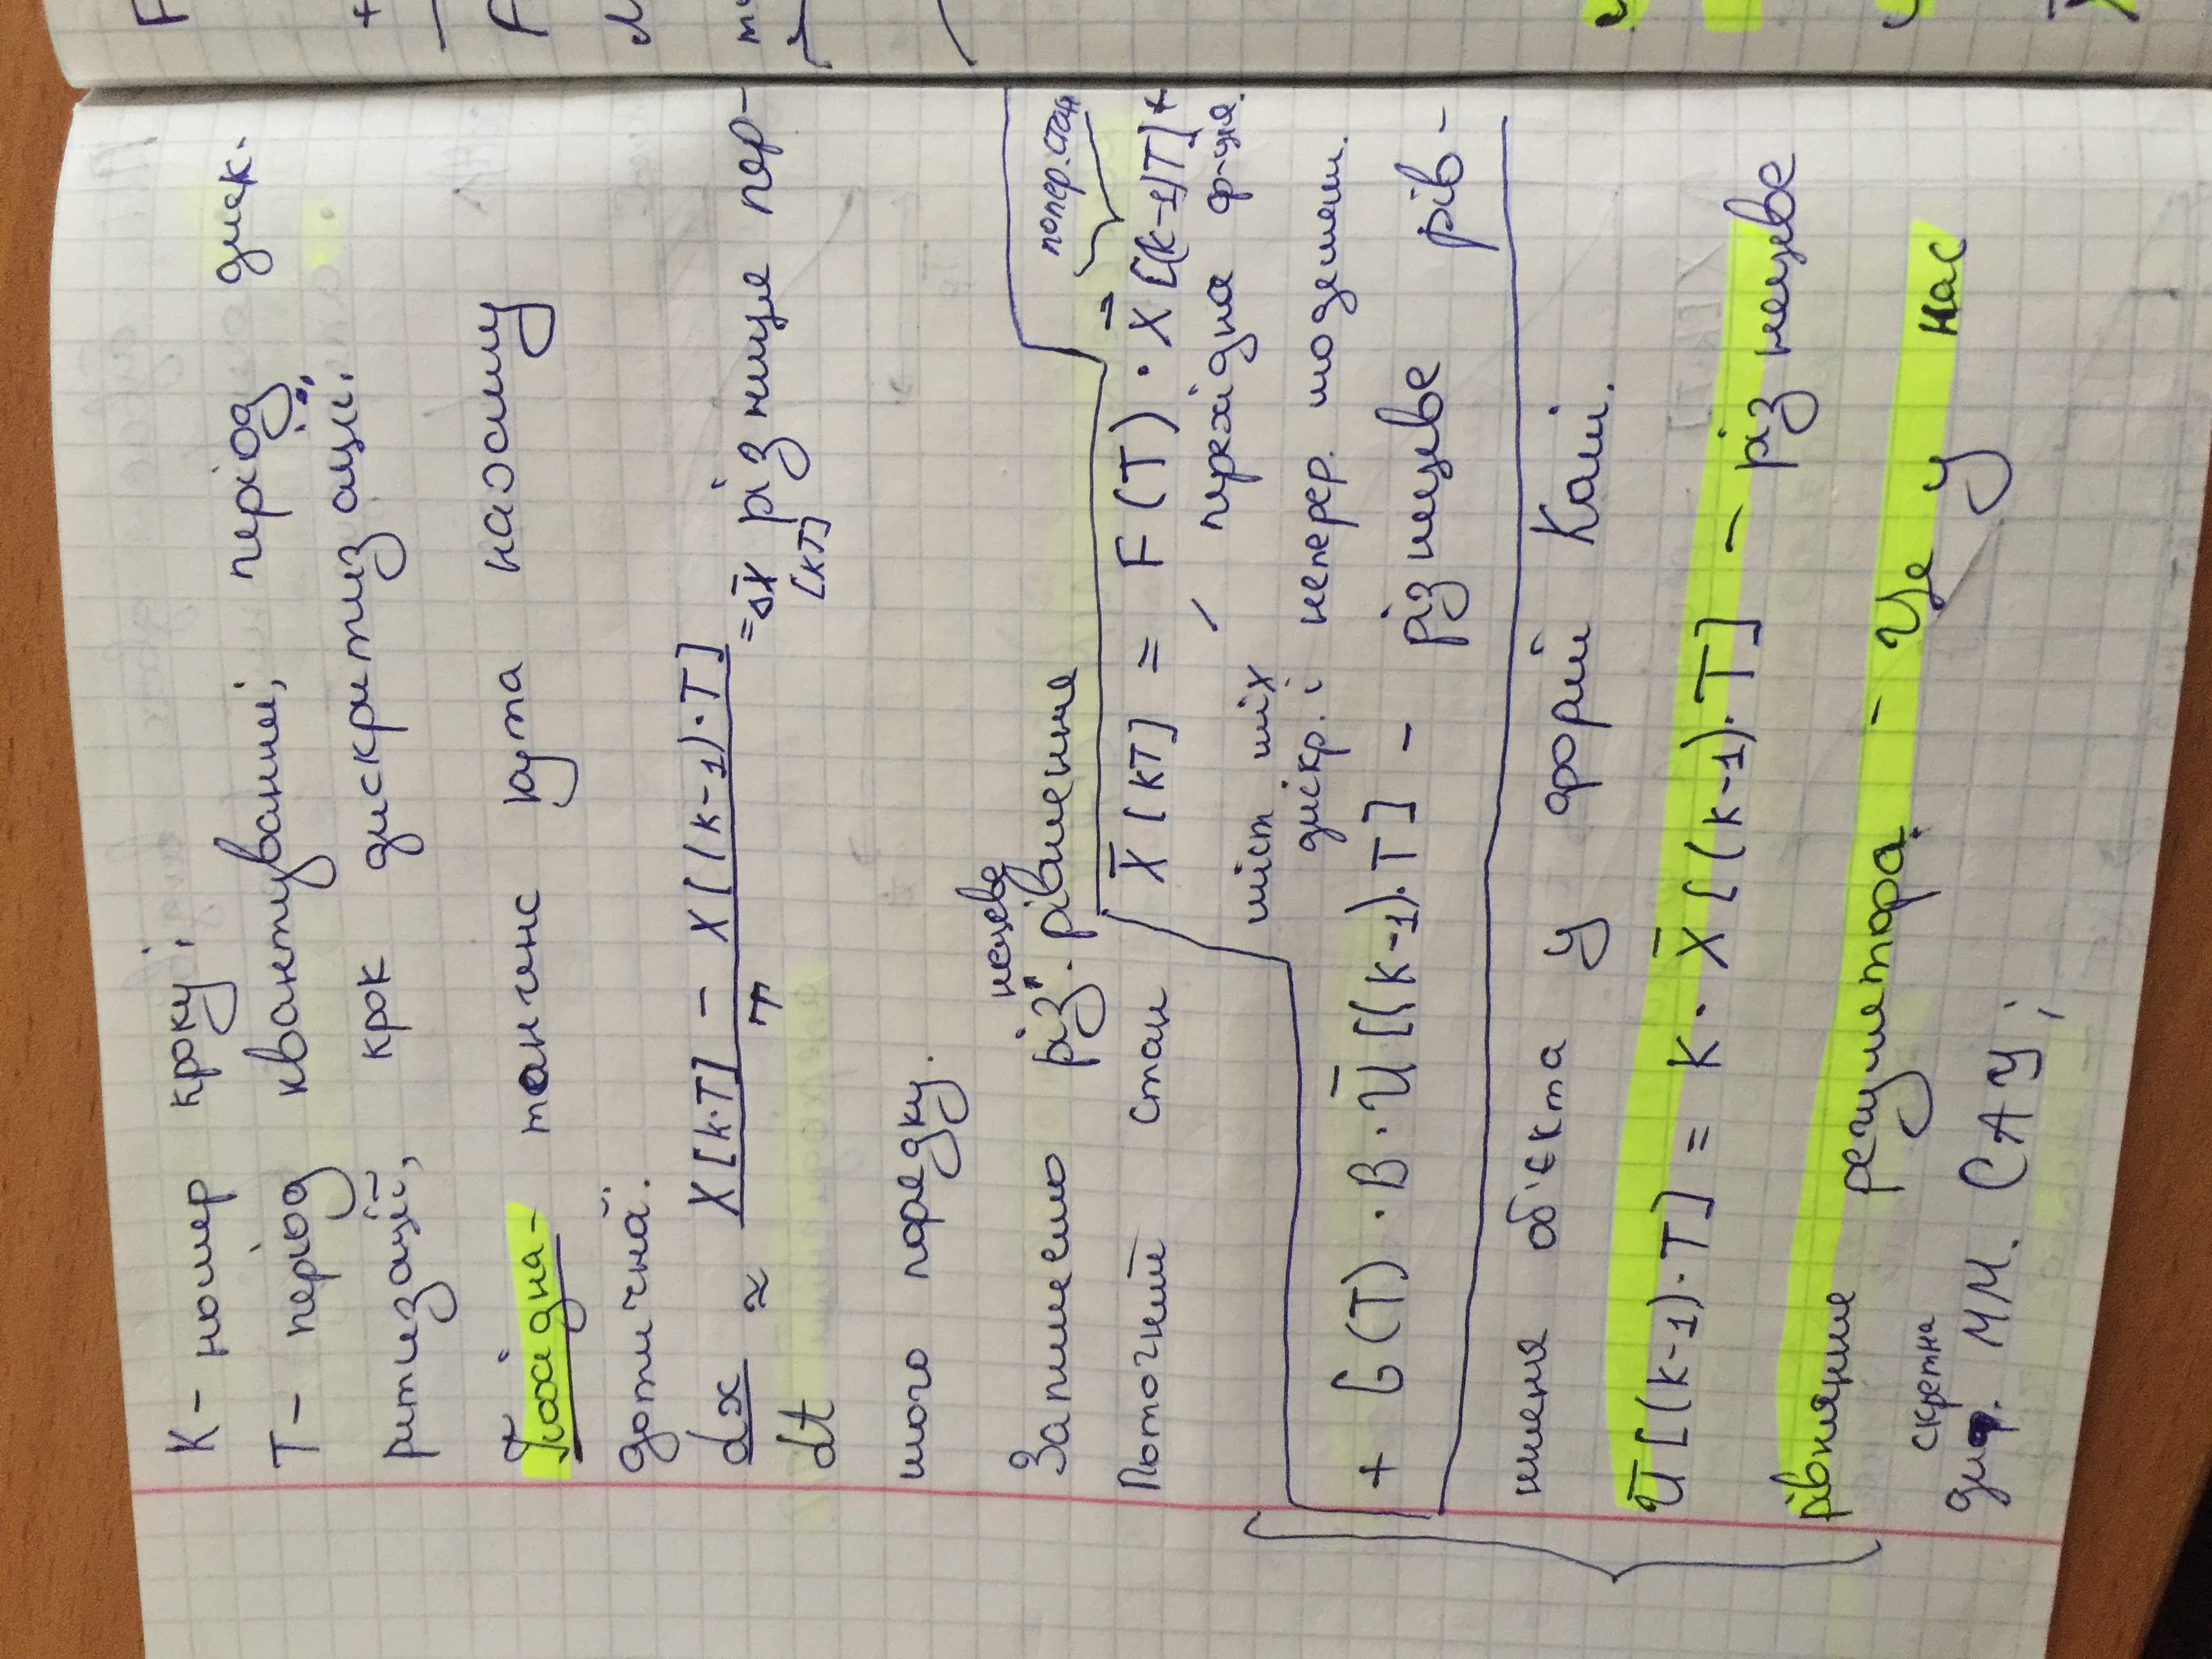 К - номер кроку;
Т - період квантування; період диск-
ритизації, крок дискритизації.
Похідна - тангенс кута нахилу
дотичної.
dx/dt ≈ (X[k·T] - X[(k-1)·T])/T = Δx̄ [кТ] різниця пер-
шого порядку.
нецеве
Запишемо різ. рівняння
попер. стан
Поточний стан X̄[кТ] = F(T)·X̄[(k-1)T] +
перехідна ф-ція.
міст між
дискр. і неперер. моделями.
+ G(T)·B·Ū[(k-1)·T] - різницеве рів-
няння об'єкта у формі Коші.
Ū[(k-1)·T] = K·X̄[(k-1)·T] - різнецеве
рівняння регулятора. - Це у нас
скретна
ди. ММ. САУ;